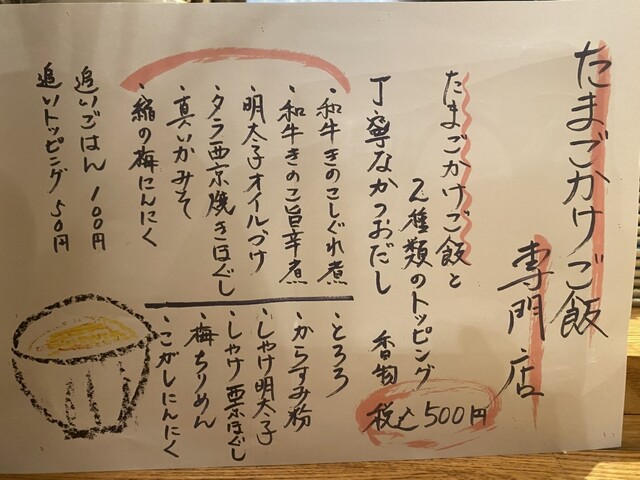 たまごかけご飯
専門店
たまごかけご飯と
2種類のトッピング
丁寧なかつおだし 香物
税込500円
・和牛きのこしぐれ煮
・和牛きのこ旨辛煮
・明太子オイルづけ
・タラ西京焼きほぐし
・真いかみそ
・縮の梅にんにく
・とろろ
・からすみ粉
・しゃけ明太子
・しゃけ西京ほぐし
・梅ちりめん
・こがしにんにく
追いごはん 100円
追いトッピング 50円